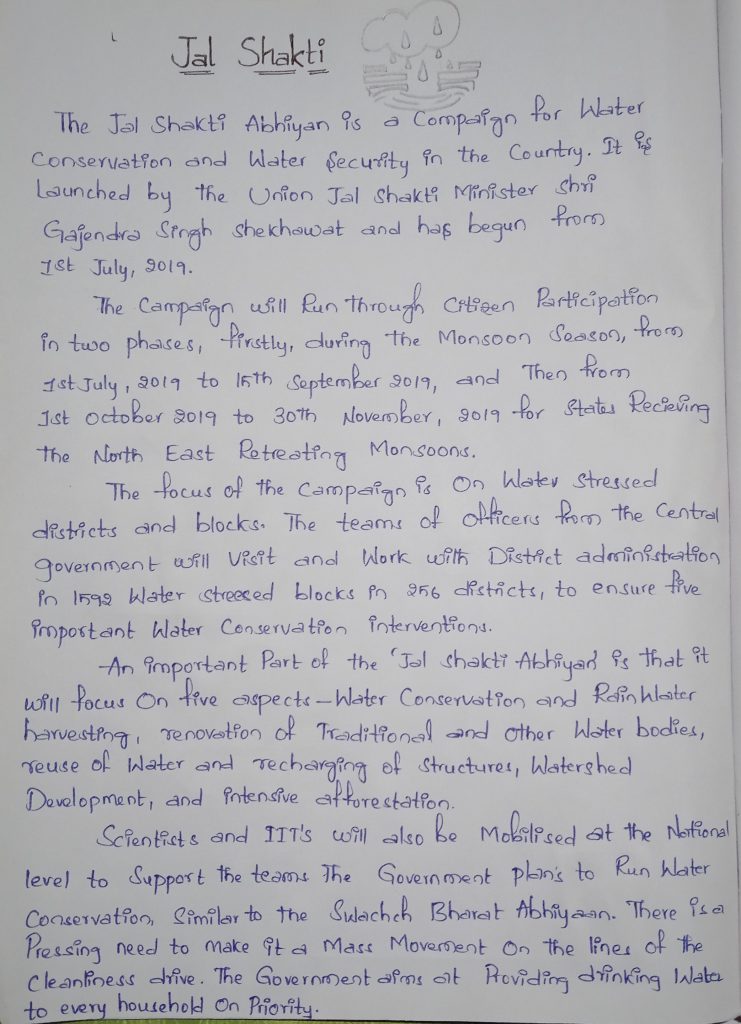 Jal Shakti
The Jal Shakti Abhiyan is a Campaign for Water
Conservation and Water Security in the Country. It is
Launched by the Union Jal Shakti Minister Shri
Gajendra Singh Shekhawat and has begun from
1st July, 2019.
The Campaign will Run through Citizen Participation
in two phases, firstly, during the Monsoon Season, from
1st July, 2019 to 15th September 2019, and Then from
1st October 2019 to 30th November, 2019 for States Recieving
the North East Retreating Monsoons.
The focus of the Campaign is On Water Stressed
districts and blocks. The teams of officers from the Central
government will Visit and Work with District administration
in 1592 Water streesed blocks in 256 districts, to ensure five
important Water Conservation interventions.
An important Part of the 'Jal Shakti Abhiyan' is that it
will focus On five aspects - Water Conservation and Rain Water
harvesting, renovation of Traditional and other Water bodies,
reuse of Water and recharging of structures, Watershed
Development, and intensive afforestation.
Scientists and IIT's will also be Mobilised at the National
level to Support the teams The Government plan's to Run Water
Conservation, Similar to the Swachch Bharat Abhiyaan. There is a
Pressing need to make it a Mass Movement On the lines of the
Cleanliness drive. The Government aims at Providing drinking Water
to every household On Priority.